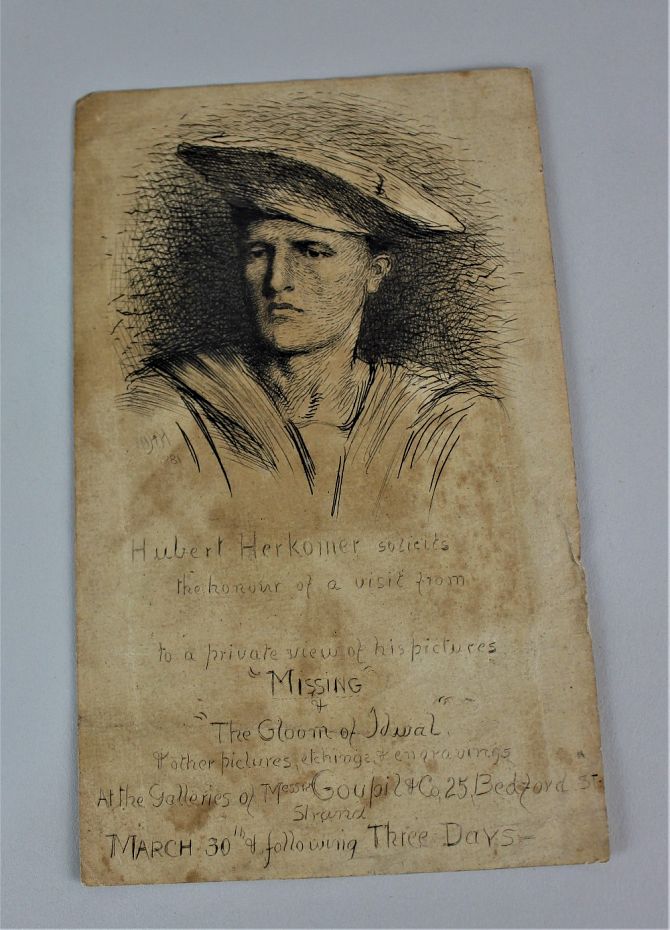 81
Hubert Herkomer solicits
the honour of a visit from
to a private view of his pictures
"MISSING"
&
"The Gloom of Idwal".
& other pictures, etchings, & engravings
At the Galleries of Messrs Goupil & Co, 25, Bedford St
Strand
MARCH 30th & following Three Days—